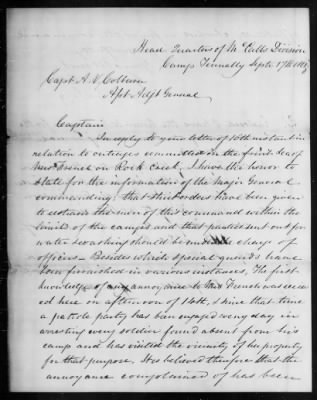 Head Quarters of McCalls Division
Camp Tennally Septr 17th 1861
Capt. A. V. Colburn
Asst Adjt General
Captain
In reply to your letter of 16th instant in
relation to outrages committed on the
Mrs French on Rock Creek. I have the honor to
State for the information of the Major General
commanding, that strict orders have been given
to restrain the men of this command within the
limits of the camps and that parties sent out for
water & washing should be under charge of
officers. Besides which special guards have
been furnished in various instances. The first
knowledge of any annoyance to Mrs French was receiv
ed here on afternoon of 14th, & since that time
a patrole party has been engaged every day in
arresting every soldier found absent from his
camp and has visited the vicinity of her property
for that purpose. It is believed therefore that the
annoyance complained of has been